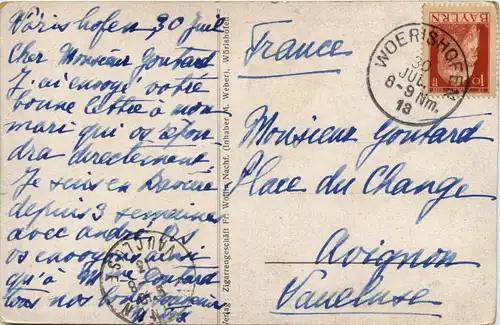 Vörishofen, 30 Juil
Cher Monsieur Goutard
J'ai envoyé votre
bonne lettre à mon
mari qui vs répon
dra directement
Je suis en Bavière
depuis 3 semaines
avec André. Vs
vs envoyons ainsi
qu'à Mme Goutard
tous nos bons souvenirs
Verlag: Zigarrengeschäft Fr. Wolf Nachf. (Inhaber M. Weber), Wörishofen
France
Monsieur Goutard
Place du Change
Avignon
Vaucluse
WOERISHOFEN
30
JUL.
8-9 Nm.
13
BAYERN
10
VAUCLUSE